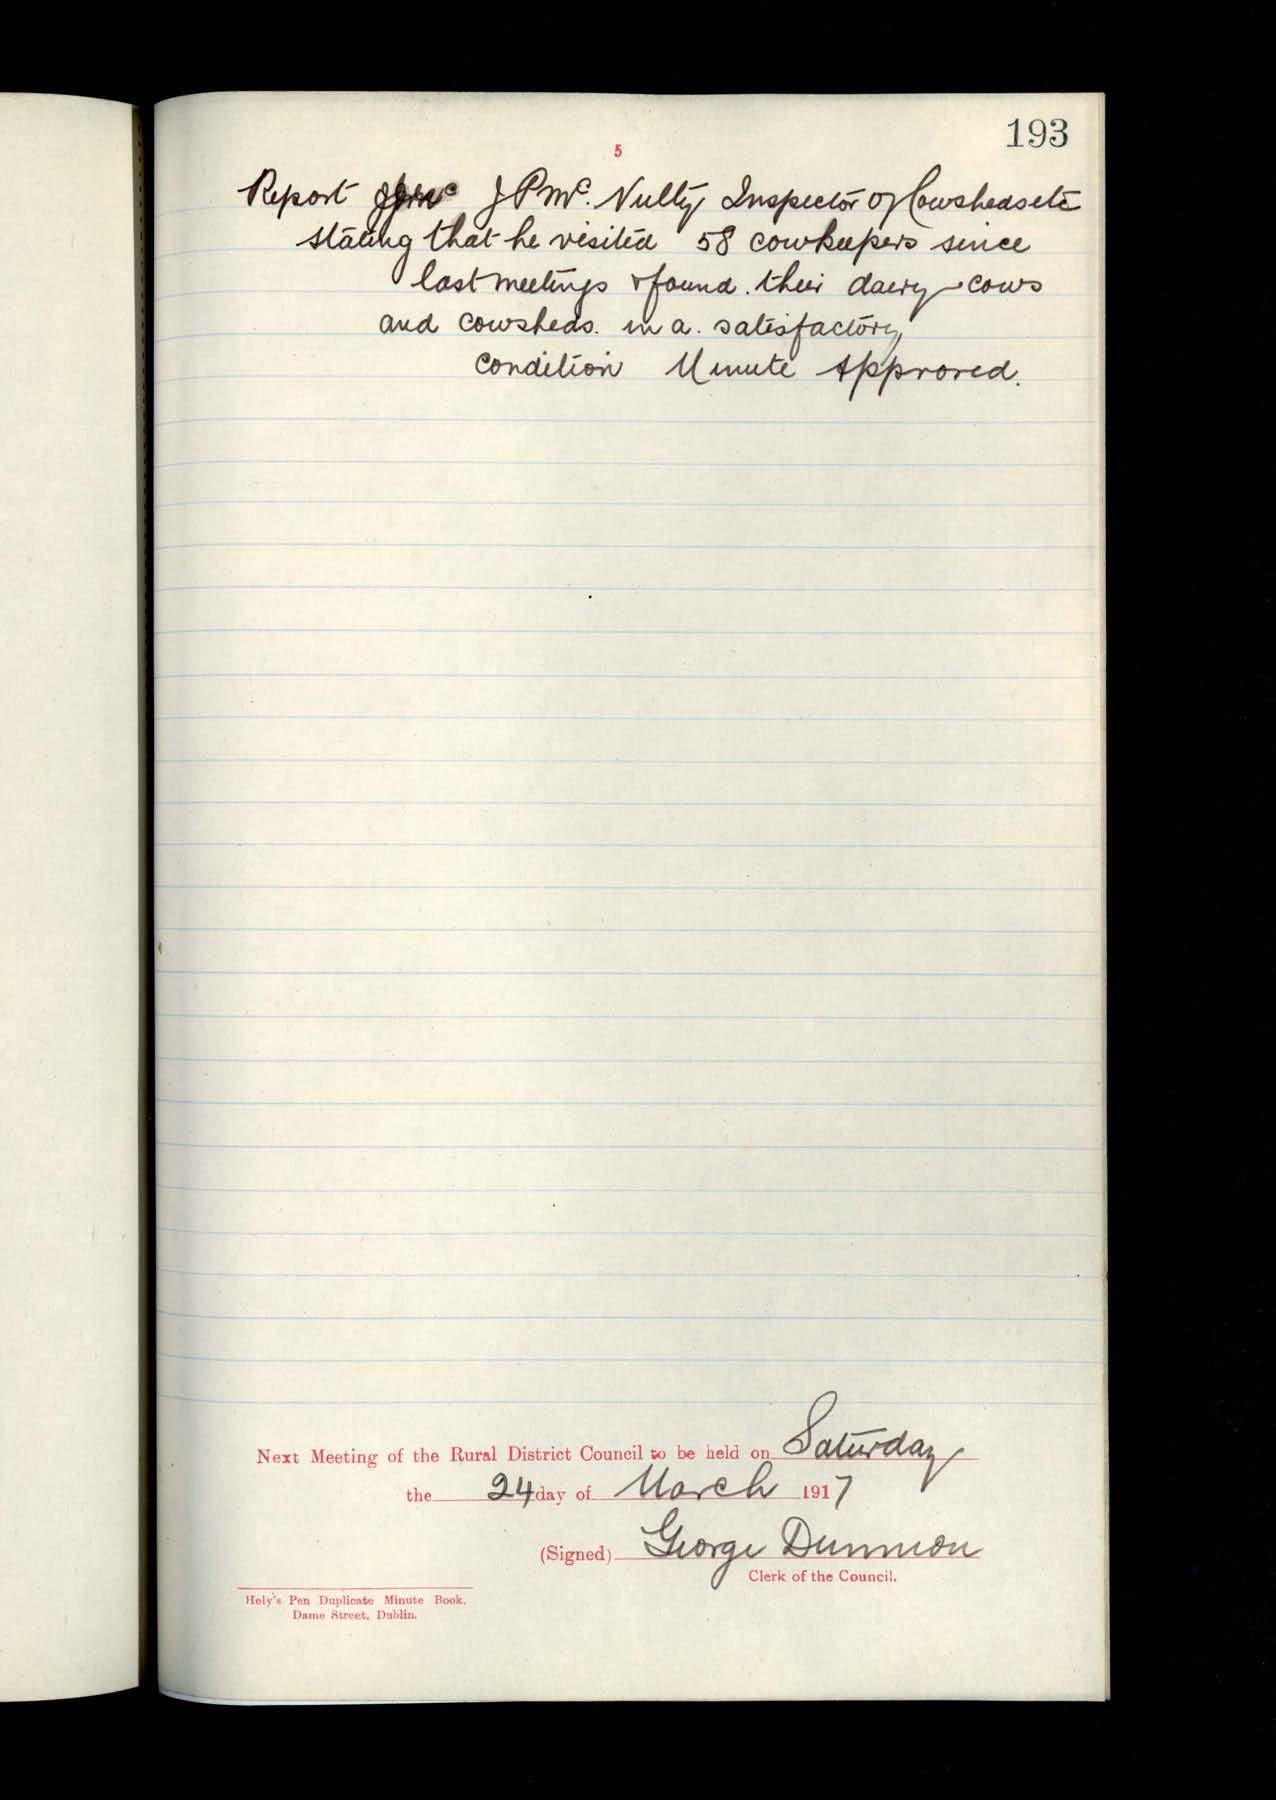 193
5
Report J P Mc. Nulty Inspector of Cowsheds etc
stating that he visited 58 cowkeepers since
last meetings & found. their dairy cows
and cowsheds. in a. satisfactory
condition Minute Approved.
Next Meeting of the Rural District Council to be held on Saturday
the 24 day of March 1917
(Signed) George Dunnion
Clerk of the Council.
Hely's Pen Duplicate Minute Book.
Dame Street, Dublin.